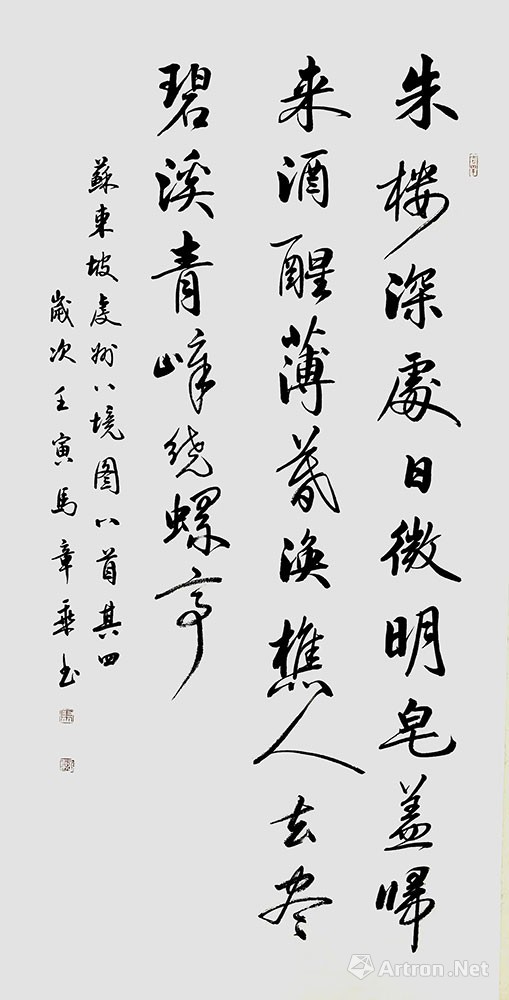 朱楼深處日微明皂盖歸
来酒醒薄暮渔樵人去尽
碧溪青嶂绕螺亭
蘇東坡虔州八境图八首其四
歲次壬寅馬章乘书
Artron.Net